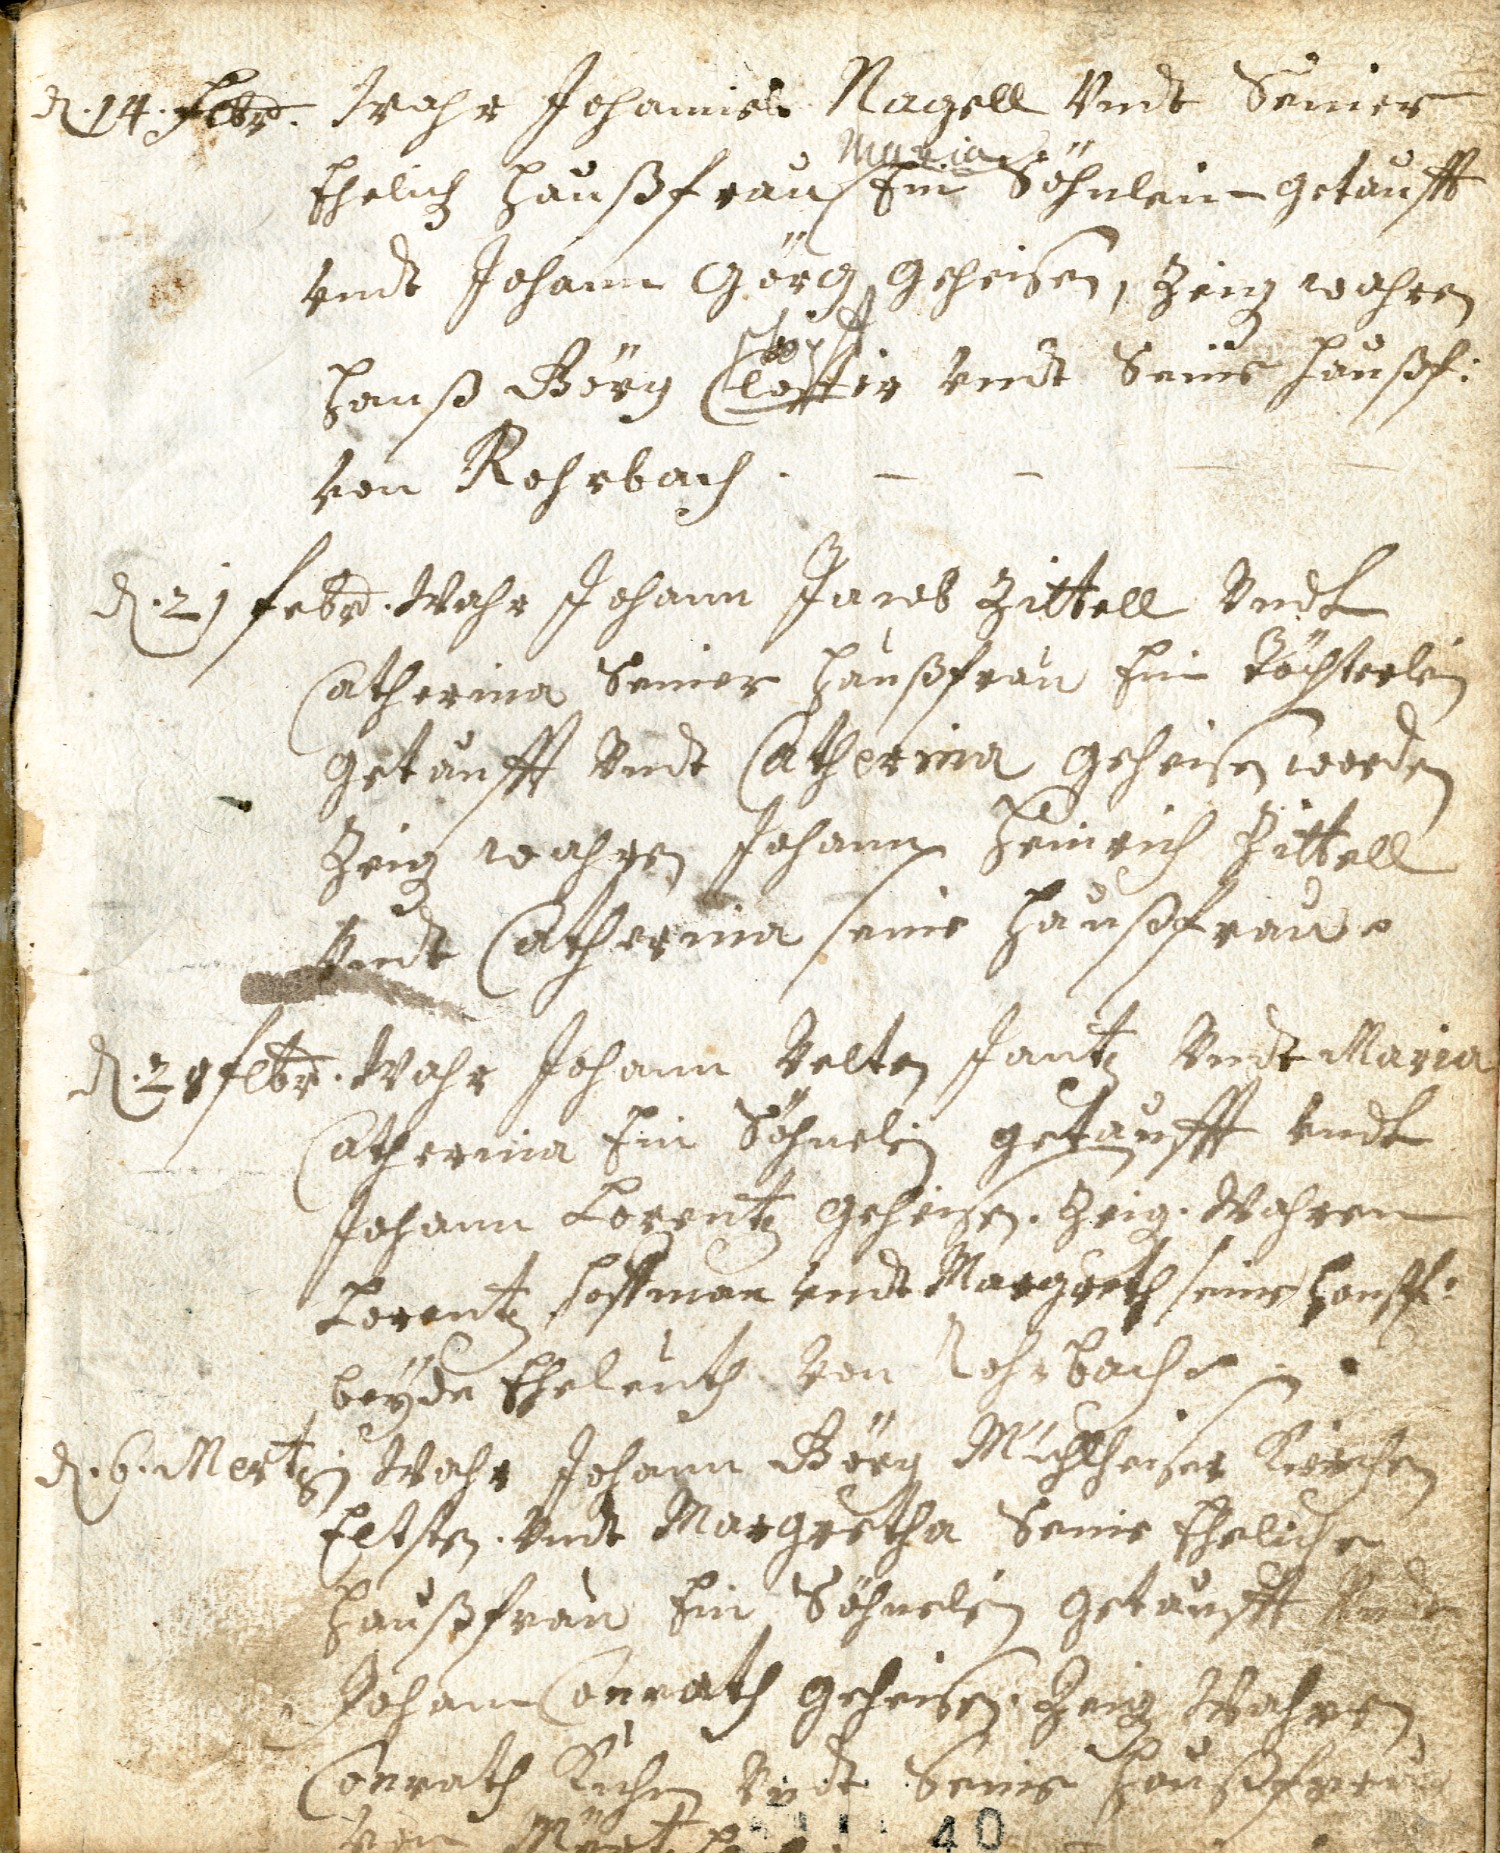 d. 14. Febr. Wahr Johannes Nagell Vndt Seiner
Maria
Ehelich Haußfrau Ein Söhnlein getaufft
vndt Johann Görg geheisen, Zeig wahren
Hanß Görg vndt Seine Haußf:
von Rohrbach.
d. 21 febr. Wahr Johann Jacob Zittell Vndt
Catherina Seiner Haußfrau Ein Töchterlein
getaufft Vndt Catherina geheisen worden
Zeig wahren Johann Heinrich Zittell
Vndt Catherina seine Haußfrau.
d. 28 febr. Wahr Johann Velten Fautz Vndt Maria
Catherina Ein Söhnelein getaufft vndt
Johann Lorentz geheisen. Zeig. Wahren
Lorentz Hoffman vndt Margreth seine Haußf:
beyde Eheleuth von Rohrbach
d. 6. Mertz Wahr Johann Görg Kirchen
Eltsten. Vndt Margretha Seine Eheliche
Haußfrau Ein Söhnelein getaufft Vndt
Johann Conrath geheisen. Zeig Wahren
Conrath Kuhn Vndt Seine Haußfrau
von
40